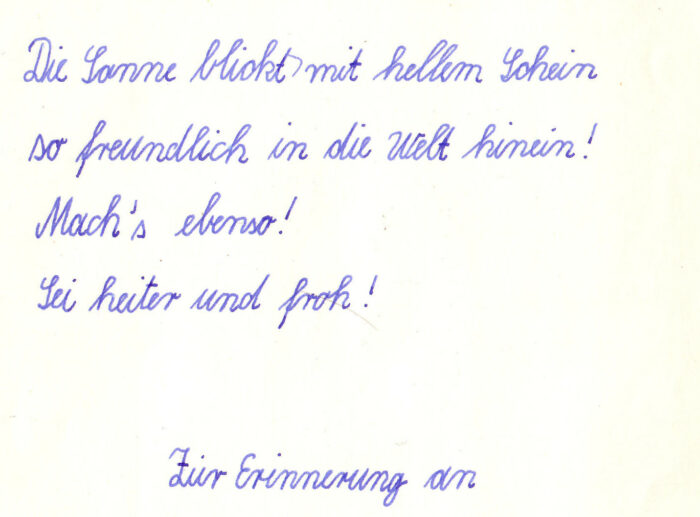 Die Sonne blickt mit hellem Schein
so freundlich in die Welt hinein!
Mach's ebenso!
Sei heiter und froh!
Zur Erinnerung an